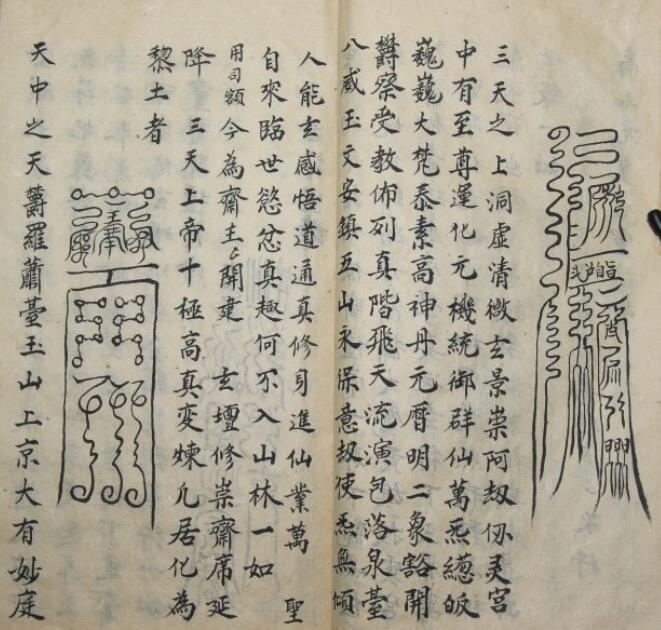 三天之上洞虛清微玄景崇阿劫仞灵宮
中有至尊運化元機統御群仙萬炁緫皈
巍巍大梵泰素高神丹元曆明二象豁開
欝察受教佈列真階飛天流演包落泉臺
八威玉文安鎮五山永保意劫使炁無傾
人能玄感悟道通真修身進仙業萬聖
自來臨世慾忿真趣何不入山林一如
用司額今為齋主 開建 玄壇修崇齋席延
降三天上帝十極高真変煉凢居化為
黎土者
天中之天欝羅蕭臺玉山上京大有妙庭